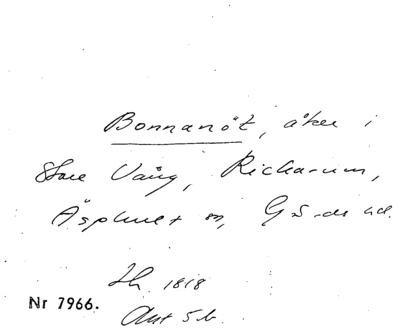 Bonnanöt, åker i
Store Vång, Rickarum,
Äsphult sn, Gärds hd.
Lh. 1818
Akt 5b.
Nr 7966.